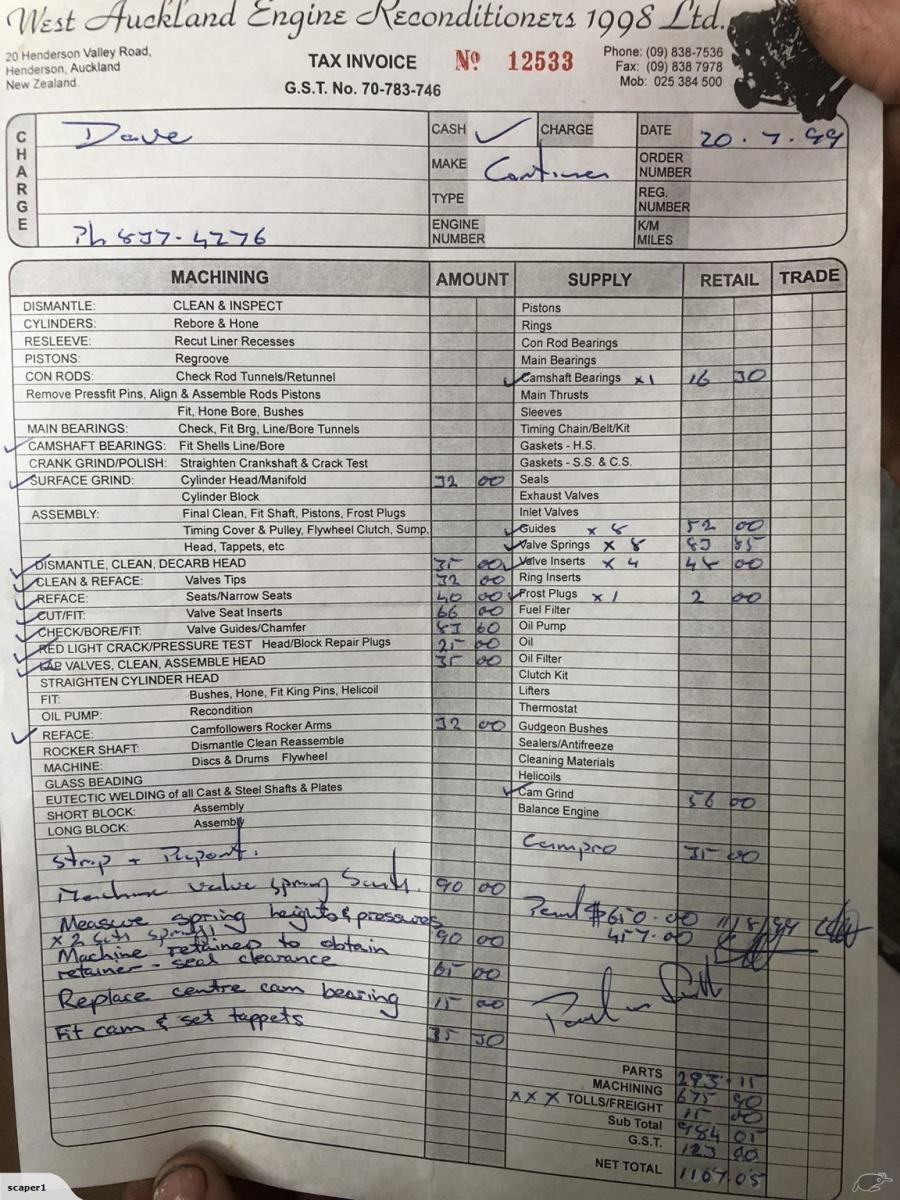 West Auckland Engine Reconditioners 1998 Ltd.
20 Henderson Valley Road,
Henderson, Auckland
New Zealand.
TAX INVOICE No 12533
G.S.T. No. 70-783-746
Phone: (09) 838-7536
Fax: (09) 838 7978
Mob: 025 384 500
CHARGE
Dave
Ph 837-4276
CASH ✓ CHARGE DATE 20.7.99
MAKE ORDER NUMBER
TYPE REG. NUMBER
ENGINE NUMBER K/M MILES
MACHINING AMOUNT SUPPLY RETAIL TRADE
DISMANTLE: CLEAN & INSPECT Pistons
CYLINDERS: Rebore & Hone Rings
RESLEEVE: Recut Liner Recesses Con Rod Bearings
PISTONS: Regroove Main Bearings
CON RODS: Check Rod Tunnels/Retunnel ✓ Camshaft Bearings x1 16 30
Remove Pressfit Pins, Align & Assemble Rods Pistons Main Thrusts
Fit, Hone Bore, Bushes Sleeves
MAIN BEARINGS: Check, Fit Brg, Line/Bore Tunnels Timing Chain/Belt/Kit
✓ CAMSHAFT BEARINGS: Fit Shells Line/Bore Gaskets - H.S.
CRANK GRIND/POLISH: Straighten Crankshaft & Crack Test Gaskets - S.S. & C.S.
✓ SURFACE GRIND: Cylinder Head/Manifold 32 00 Seals
Cylinder Block Exhaust Valves
ASSEMBLY: Final Clean, Fit Shaft, Pistons, Frost Plugs Inlet Valves
Timing Cover & Pulley, Flywheel Clutch, Sump, ✓ Guides x 8 52 00
Head, Tappets, etc ✓ Valve Springs x 8 83 85
✓ DISMANTLE, CLEAN, DECARB HEAD 35 00 ✓ Valve Inserts x 4 48 00
✓ CLEAN & REFACE: Valves Tips 32 00 Ring Inserts
✓ REFACE: Seats/Narrow Seats 40 00 ✓ Frost Plugs x1 2 00
✓ CUT/FIT: Valve Seat Inserts 66 00 Fuel Filter
✓ CHECK/BORE/FIT: Valve Guides/Chamfer 83 60 Oil Pump
✓ RED LIGHT CRACK/PRESSURE TEST Head/Block Repair Plugs 25 00 Oil
✓ LAP VALVES, CLEAN, ASSEMBLE HEAD 35 00 Oil Filter
STRAIGHTEN CYLINDER HEAD Clutch Kit
FIT: Bushes, Hone, Fit King Pins, Helicoil Lifters
OIL PUMP: Recondition Thermostat
✓ REFACE: Camfollowers Rocker Arms 32 00 Gudgeon Bushes
ROCKER SHAFT: Dismantle Clean Reassemble Sealers/Antifreeze
MACHINE: Discs & Drums Flywheel Cleaning Materials
GLASS BEADING Helicoils
EUTECTIC WELDING of all Cast & Steel Shafts & Plates ✓ Cam Grind 56 00
SHORT BLOCK: Assembly Balance Engine
LONG BLOCK: Assembly
Strip + Report. Campro 35 00
Machine valve spring Seats. 90 00
Measure spring heights & pressures
x 2 sets springs 90 00
Machine retainers to obtain
retainer - seal clearance 65 00
Replace centre cam bearing 15 00
Fit cam & set tappets 35 30
$650.00 11/8/99
457.00
PARTS 293.15
MACHINING 675 90
x x x TOLLS/FREIGHT 15 00
Sub Total 984 05
G.S.T. 123 00
NET TOTAL 1107.05
scaper1